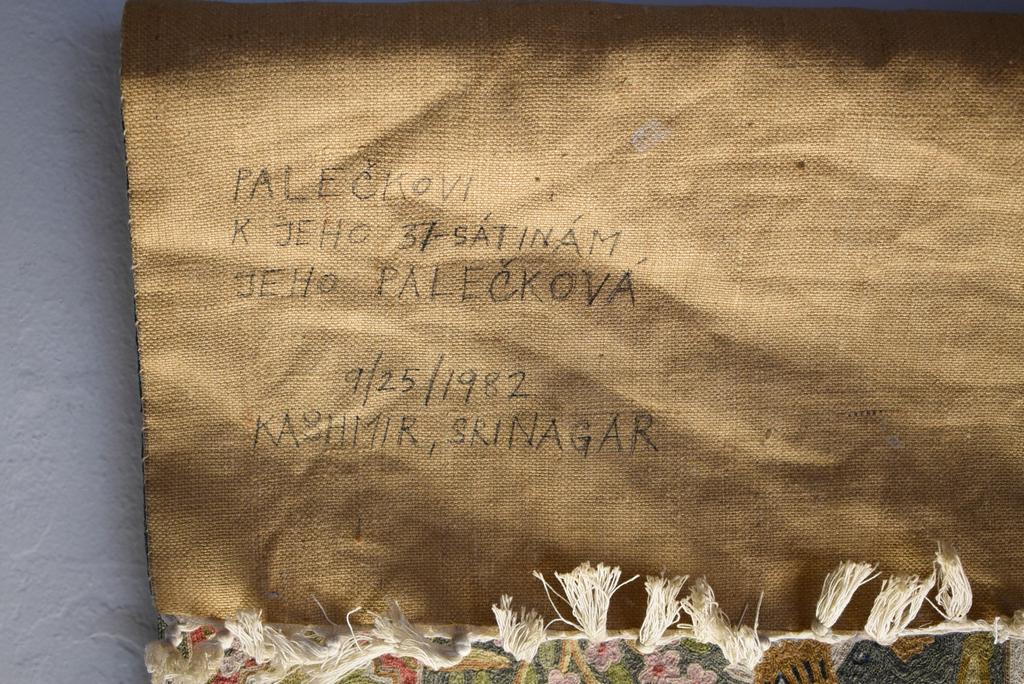 PALEČKOVI
K JEHO 37-SÁTINÁM
JEHO PALEČKOVÁ
9/25/1982
KASHMIR, SRINAGAR